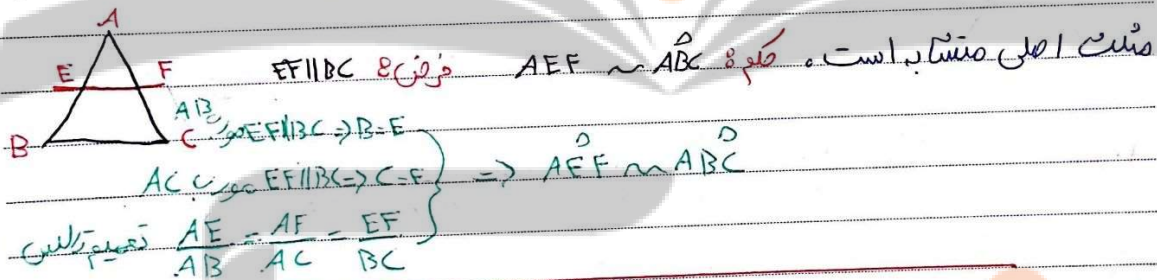 مثلث اصلی متشابه است. حکم: AEF ~ ABC فرض: EF||BC
A
E F
B C
AB مورب EF||BC => B=E
AC مورب EF||BC => C=F
=> AEF ~ ABC
تعمیم تالس AE/AB = AF/AC = EF/BC